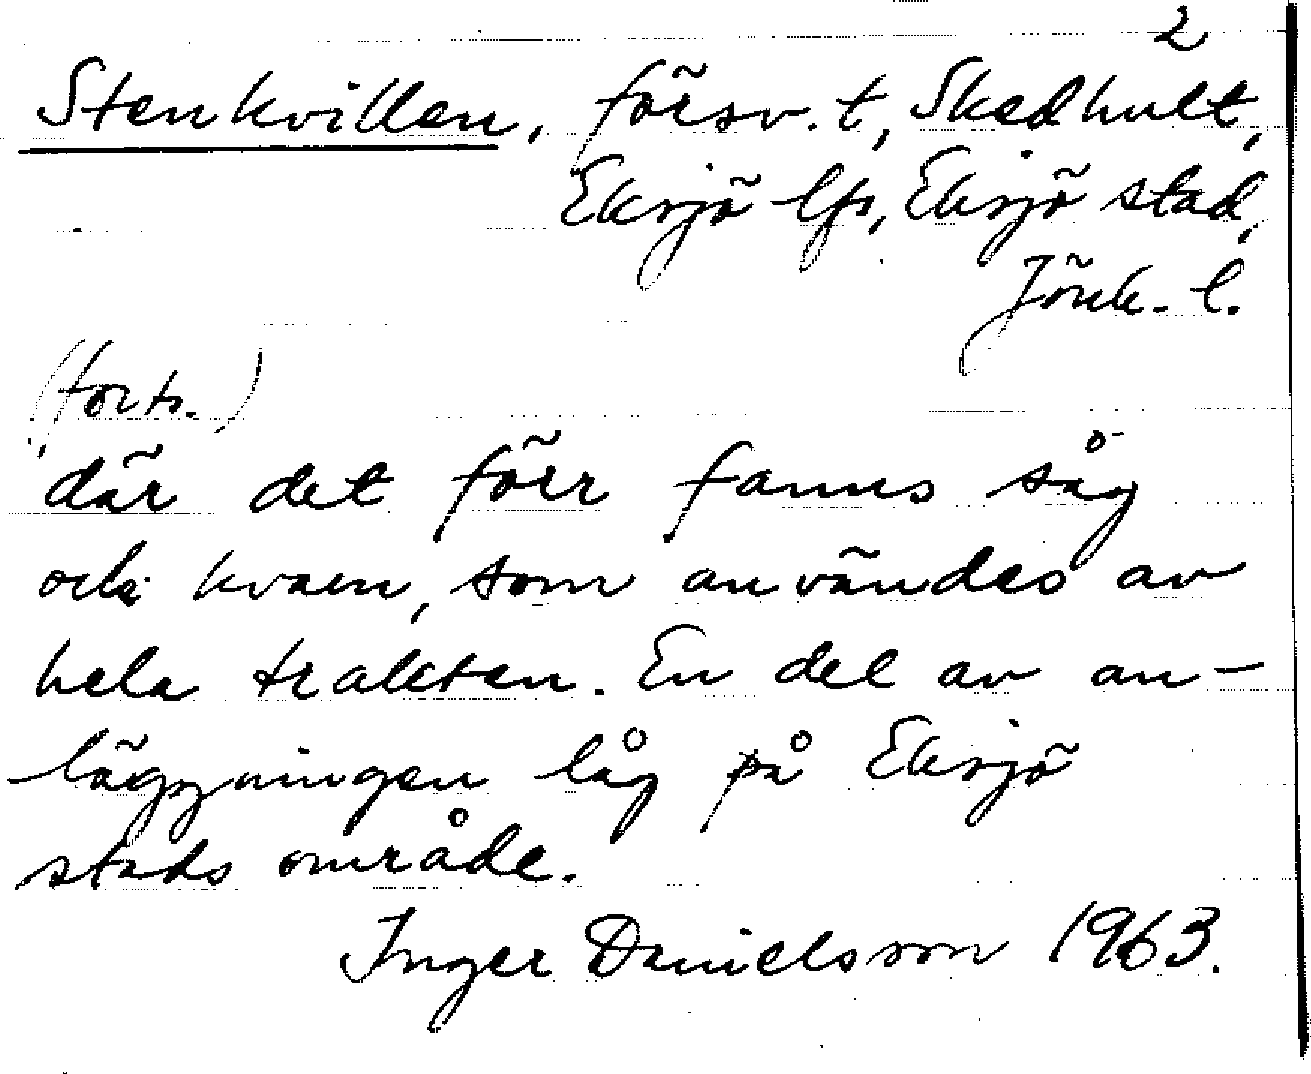 2
Stenkvillen, försv. t, Skedhult,
Eksjö lfs, Eksjö stad,
Jönk. l.
(forts.)
där det förr fanns såg
och kvarn, som användes av
hela trakten. En del av an-
läggningen låg på Eksjö
stads område.
Inger Danielsson 1963.